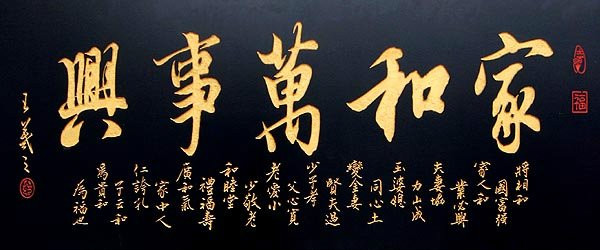 家和萬事興
將相和
國富強
家人和
業必興
夫妻協
力山成
玉婆媳
同心土
變金妻
賢夫禍
少子孝
父心寬
老愛小
少敬老
和睦堂
禮福壽
廣和氣
家中人
為貴和
為福也
王羲之
福